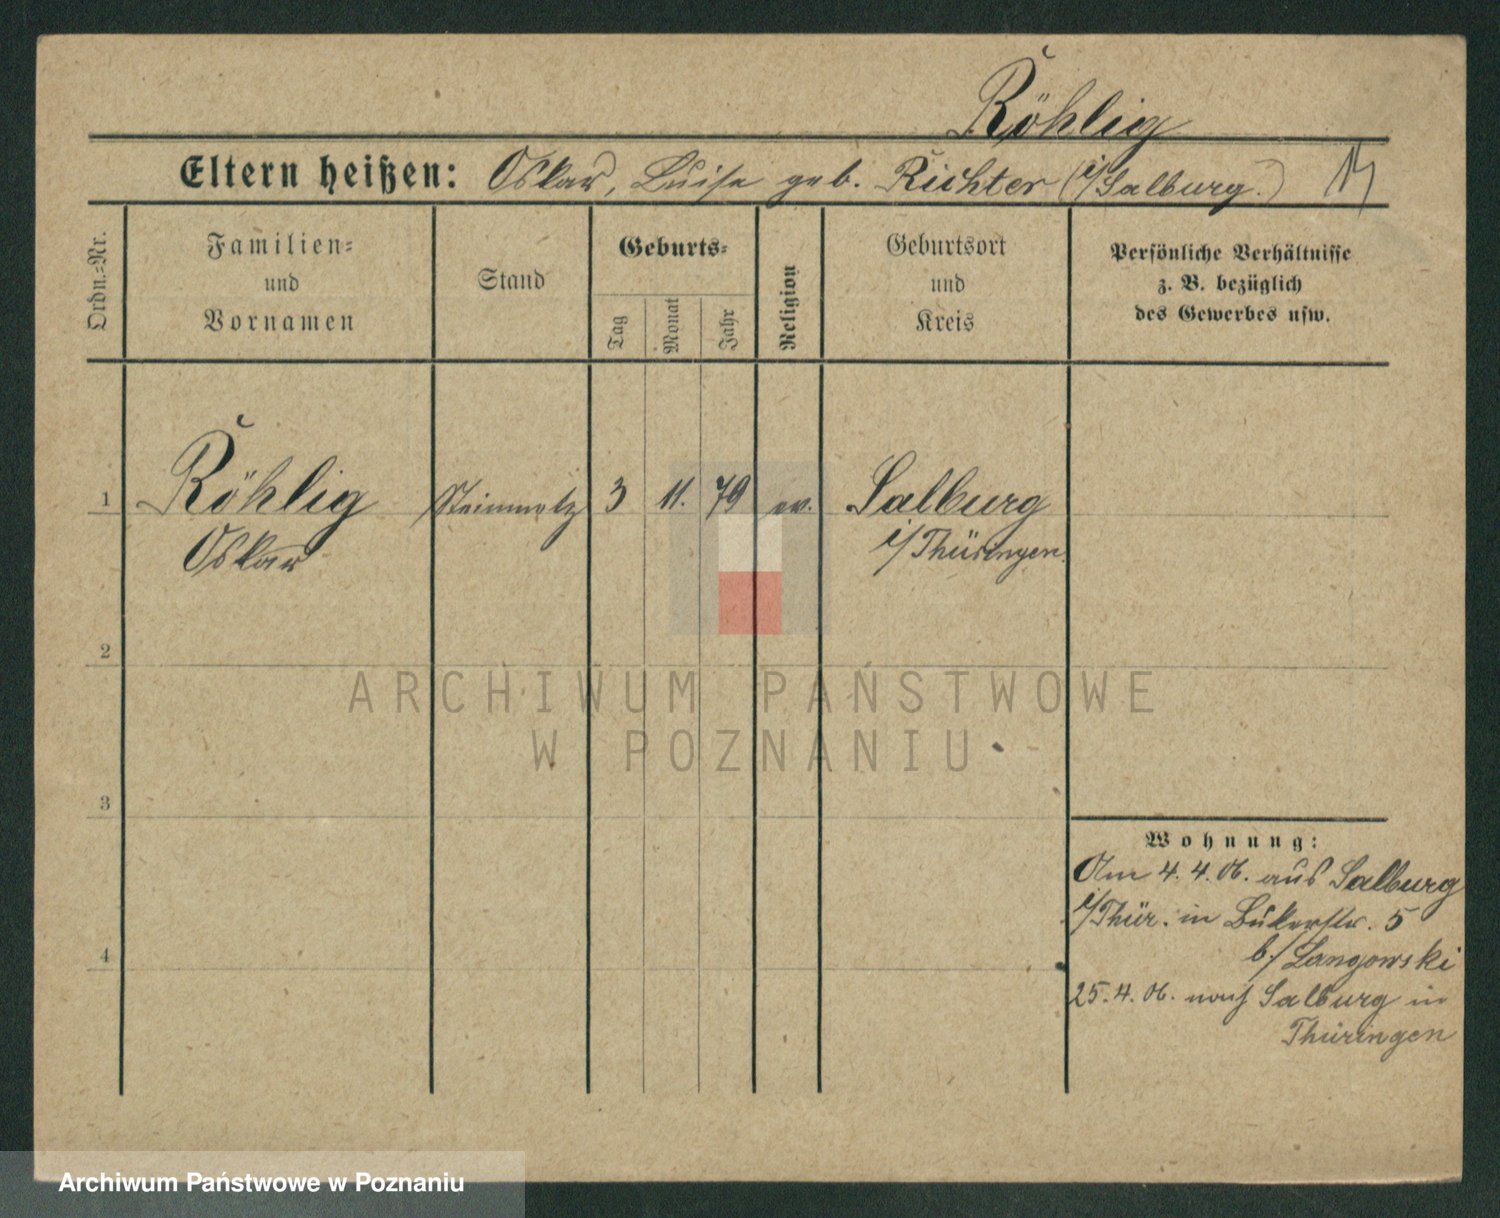 Röhlig
Eltern heißen: Oskar, Luise geb. Richter (i/Salburg.)
Ordn.=Nr.
Familien=
und
Vornamen
Stand
Geburts=
Tag
Monat
Jahr
Religion
Geburtsort
und
Kreis
Persönliche Verhältnisse
z. B. bezüglich
des Gewerbes usw.
1 Röhlig Steinmetz 3 11. 79 ev. Salburg
Oskar i/Thüringen.
2
3
4
Wohnung:
Am 4. 4. 06. aus Salburg
i/Thür. in Bukerstr. 5
b/ Langowski
25. 4. 06. nach Salburg in
Thüringen
ARCHIWUM PAŃSTWOWE
W POZNANIU
Archiwum Państwowe w Poznaniu